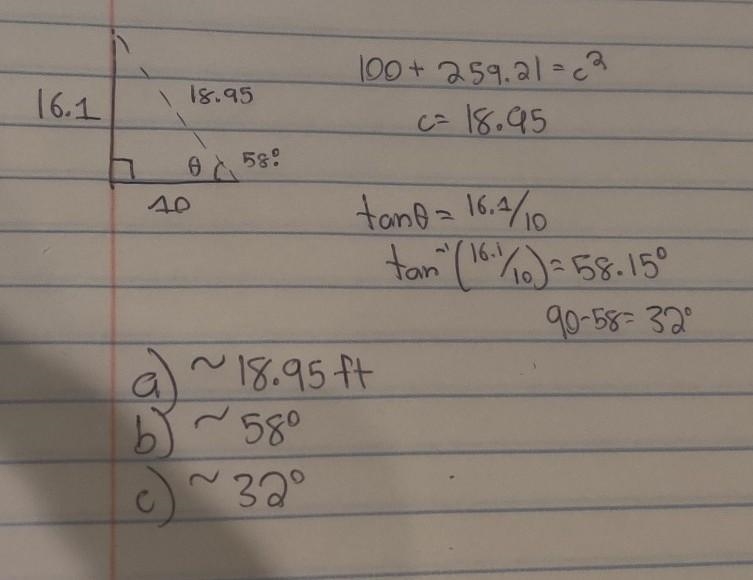 100 + 259.21 = c²
16.1
18.95
c = 18.95
θ
58°
10
tanθ = 16.1/10
tan⁻¹(16.1/10) = 58.15°
90-58 = 32°
a) ~ 18.95 ft
b) ~ 58°
c) ~ 32°